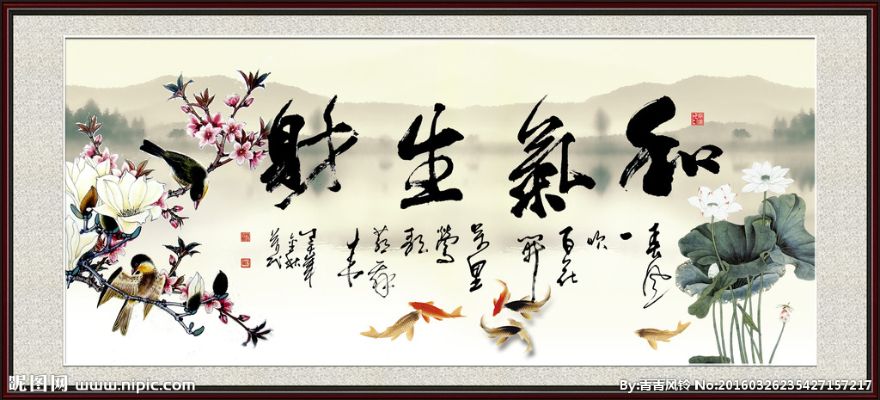 和氣生財
春風
一
吹
百花
開
萬里
鶯
歌
燕舞
春
金秋
昵图网 www.nipic.com
By:青青风铃 No:20160326235427157217